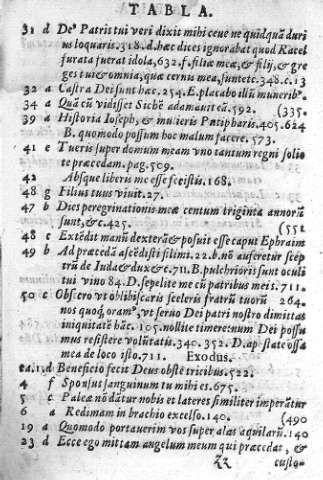 TABLA.
31 d Deˢ Patris tui veri dixit mihi ceue ne quidquā duri
us loquaris. 318. d. hæc dices ignorabat quod Racel
furata fuerat idola, 632. f. filiæ meæ, & filij, & gre
ges tui & omnia, quæ cernis mea, sunt etc. 348. c. 13
32 a Castra Dei sunt hæc. 254. E. placabo illū munerib⁹.
34 a Quā cū vidisset Sichē adamauit eā. 592. (335.
39 a Historia Ioseph, & mulieris Putipharis. 405. 624
B. quomodo possum hoc malum facere. 573.
41 e Tu eris super domum meam vno tantum regni solio
te præcedam. pag. 509.
42 Absque liberis me esse fecistis. 168.
48 g Filius tuus viuit. 27.
47 b Dies peregrinationis meæ centum triginta annorū
sunt, &c. 425. (552
48 c Extēdit manū dexterā & posuit esse caput Ephraim
49 b Ad prædā ascēdisti fili mi. 22. b. nō auferetur scep
trū de Iuda & dux &c. 711. B. pulchriōri sunt oculi
tui vino 84. D. sepelite me cū patribus meis. 711.
50 c Obsecro vt obliuiscaris sceleris fratrū tuorū 264.
nos quoq, oramˢ, vt seruo Dei patri nostro dimittas
iniquitatē hāc. 105. nollite timere: num Dei possu
mus resistere volūtatis. 340. 352. D. asportate ossa
mea de loco isto. 711. Exodus.
ca. 1, d Beneficio fecit Deus obstetricibus. 522.
4 f Sponsus sanguinum tu mihi es. 675.
5 c Paleæ nō dātur nobis et lateres similiter imperātur
6 a Redimam in brachio excelso. 140. (490
19 a Quomodo portauerim vos super alas aquilarū. 140
23 d Ecce ego mittam angelum meum qui præcedat, &
custo-